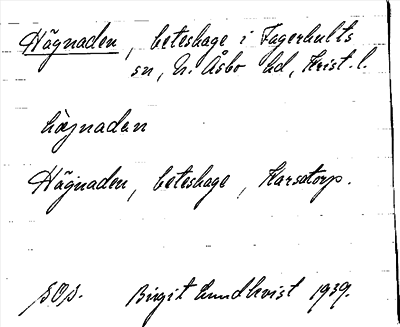 Hägnaden, beteshage i Fagerhults
sn, N. Åsbo hd, Krist. l.
hägnadən
Hägnaden, beteshage, Karsatorp.
SOS. Birgit Lundkvist 1939.